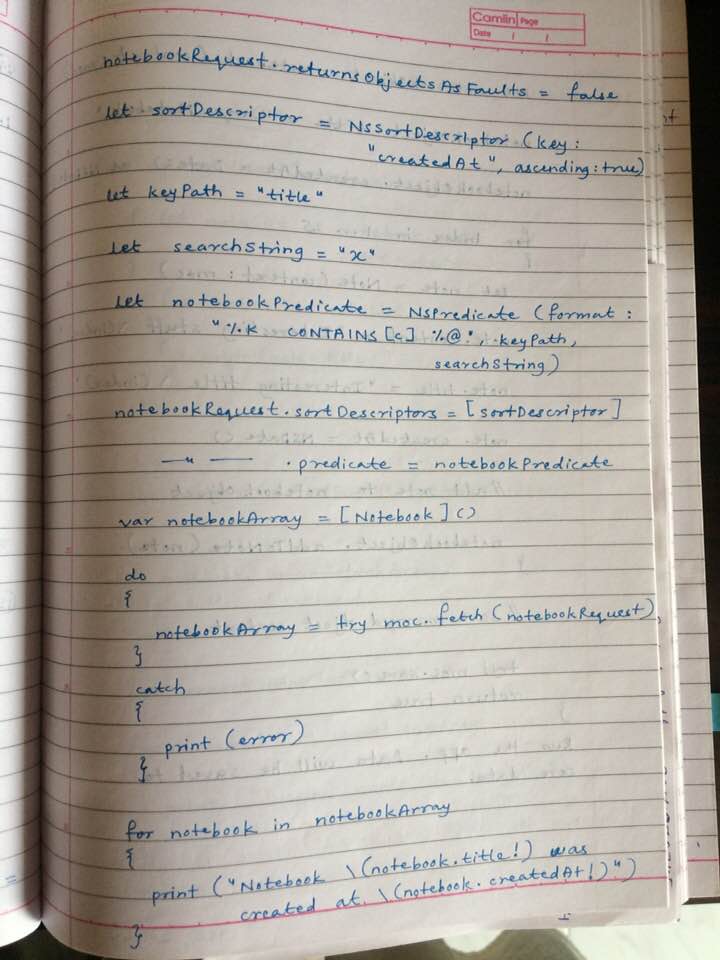 Camlin Page
Date / /
notebookRequest.returnsObjectsAsFaults = false
let sortDescriptor = NSSortDescriptor (key:
"createdAt", ascending:true)
let keyPath = "title"
let searchString = "x"
let notebookPredicate = NSPredicate (format:
"%K CONTAINS[c] %@", keyPath,
searchString)
notebookRequest.sortDescriptors = [sortDescriptor]
—〃— .predicate = notebookPredicate
var notebookArray = [Notebook]()
do
{
notebookArray = try moc.fetch(notebookRequest)
}
catch
{
print (error)
}
for notebook in notebookArray
{
print ("Notebook \(notebook.title!) was
created at \(notebook.createdAt!)")
}